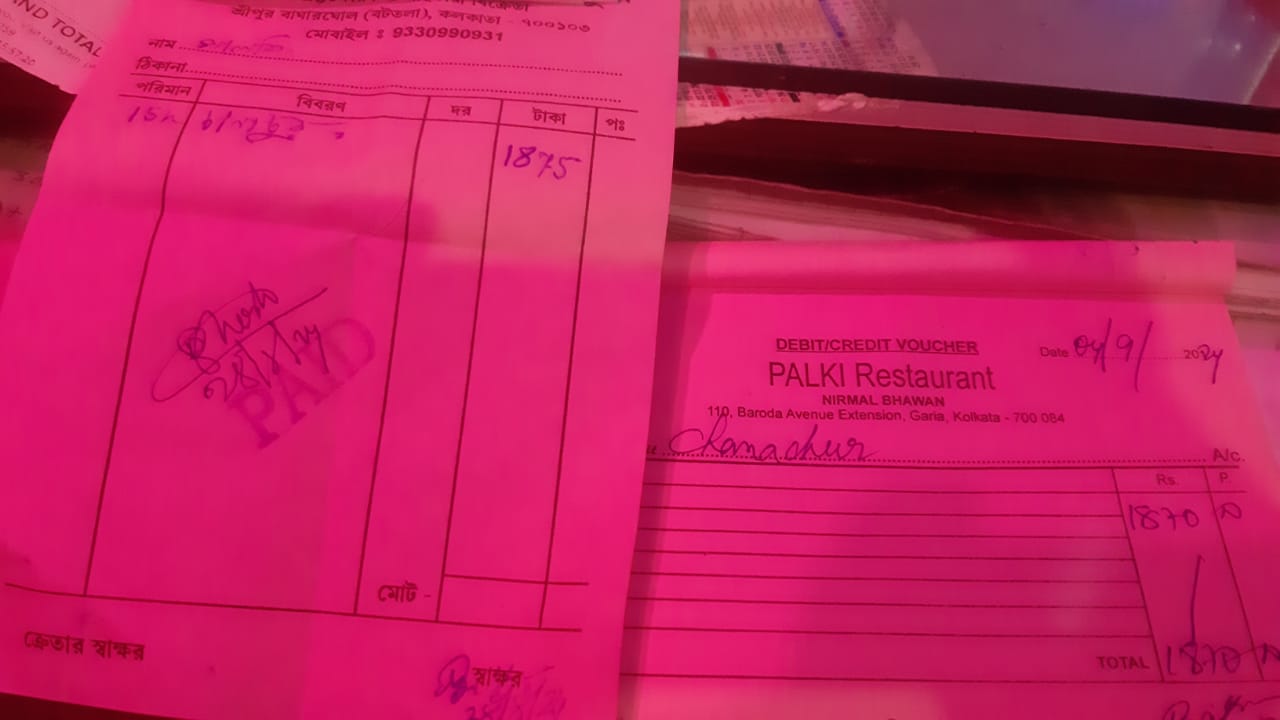 ND TOTAL
শ্রীপুর বাঘারঘোল (বটতলা), কলকাতা - ৭০০১০৩
মোবাইল ঃ 9330990931
নাম
ঠিকানা
পরিমান বিবরণ দর টাকা পঃ
1875
PAID
মোট -
ক্রেতার স্বাক্ষর
স্বাক্ষর
DEBIT/CREDIT VOUCHER
Date 04/9/ 2024
PALKI Restaurant
NIRMAL BHAWAN
110, Baroda Avenue Extension, Garia, Kolkata - 700 084
Chanachur A/c.
Rs. P.
1870
TOTAL 1870